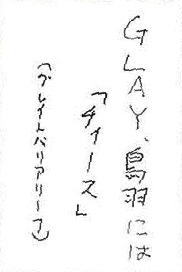 GLAY、鳥羽には
「チーズ」
(グレイトバリアリーフ)